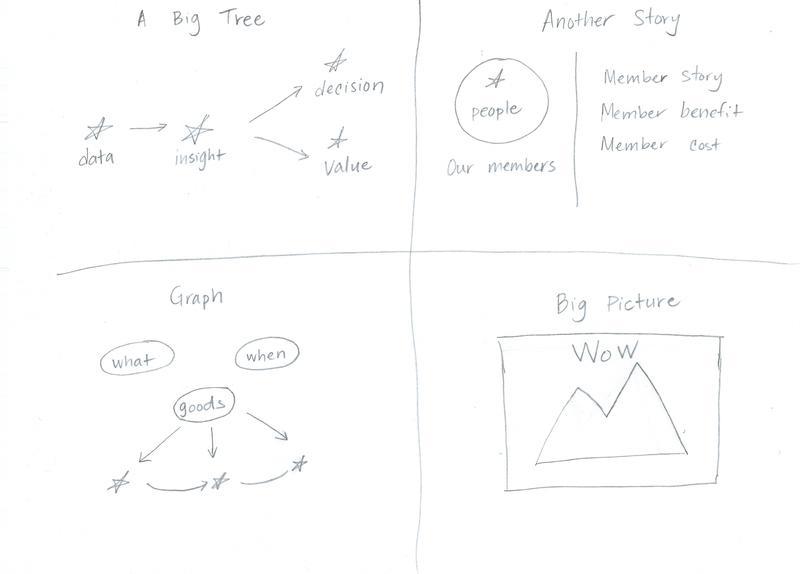 A Big Tree
decision
data
insight
Value
Another Story
people
Our members
Member Story
Member benefit
Member cost
Graph
what
when
goods
Big Picture
WoW